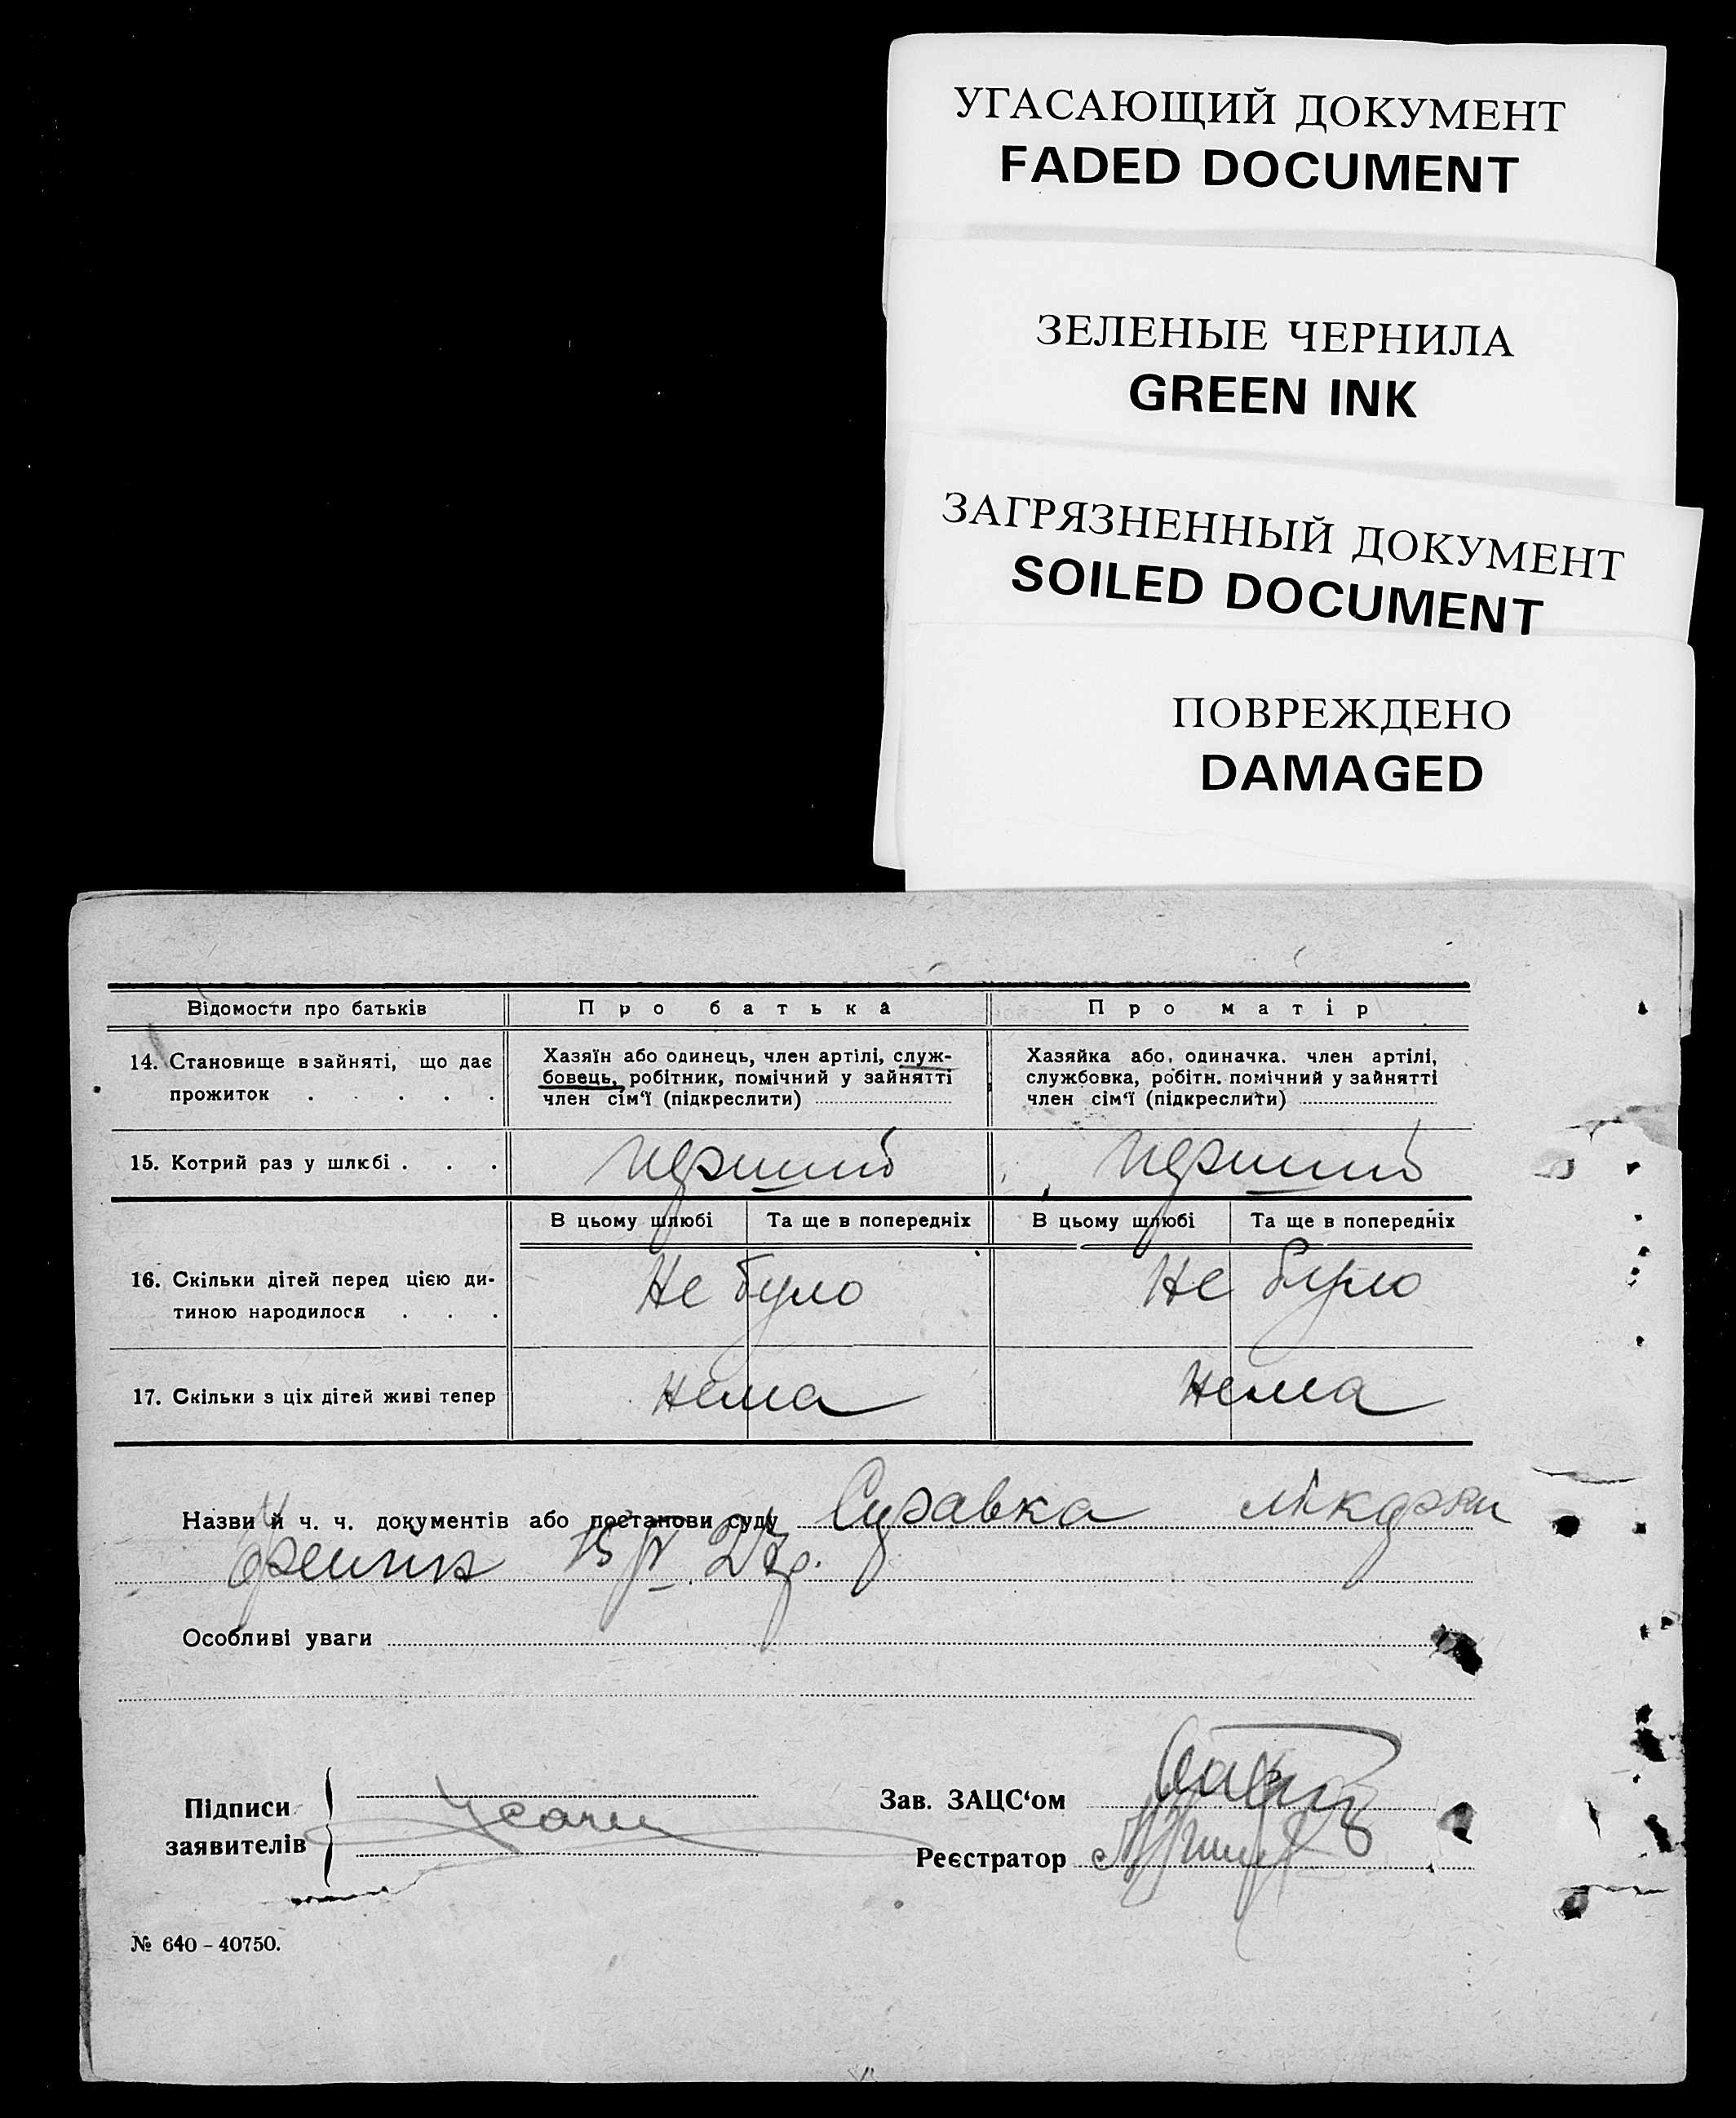 УГАСАЮЩИЙ ДОКУМЕНТ
FADED DOCUMENT
ЗЕЛЕНЫЕ ЧЕРНИЛА
GREEN INK
ЗАГРЯЗНЕННЫЙ ДОКУМЕНТ
SOILED DOCUMENT
ПОВРЕЖДЕНО
DAMAGED
Відомости про батьків
Про батька
Про матір
14. Становище в зайняті, що дає
прожиток . . . . .
Хазяїн або одинець, член артілі, служ-
бовець, робітник, помічний у зайнятті
член сім‘ї (підкреслити)
Хазяйка або, одиначка. член артілі,
службовка, робітн. помічний у зайнятті
член сім‘ї (підкреслити)
15. Котрий раз у шлюбі . . .
перший
перший
В цьому шлюбі
Та ще в попередніх
В цьому шлюбі
Та ще в попередніх
16. Скільки дітей перед цією ди-
тиною народилося . . .
Не було
Не було
17. Скільки з ціх дітей живі тепер
нема
нема
Назви й ч. ч. документів або постанови суду Справка
Особливі уваги
Підписи
заявителів
Зав. ЗАЦС‘ом
Реєстратор
№ 640 – 40750.